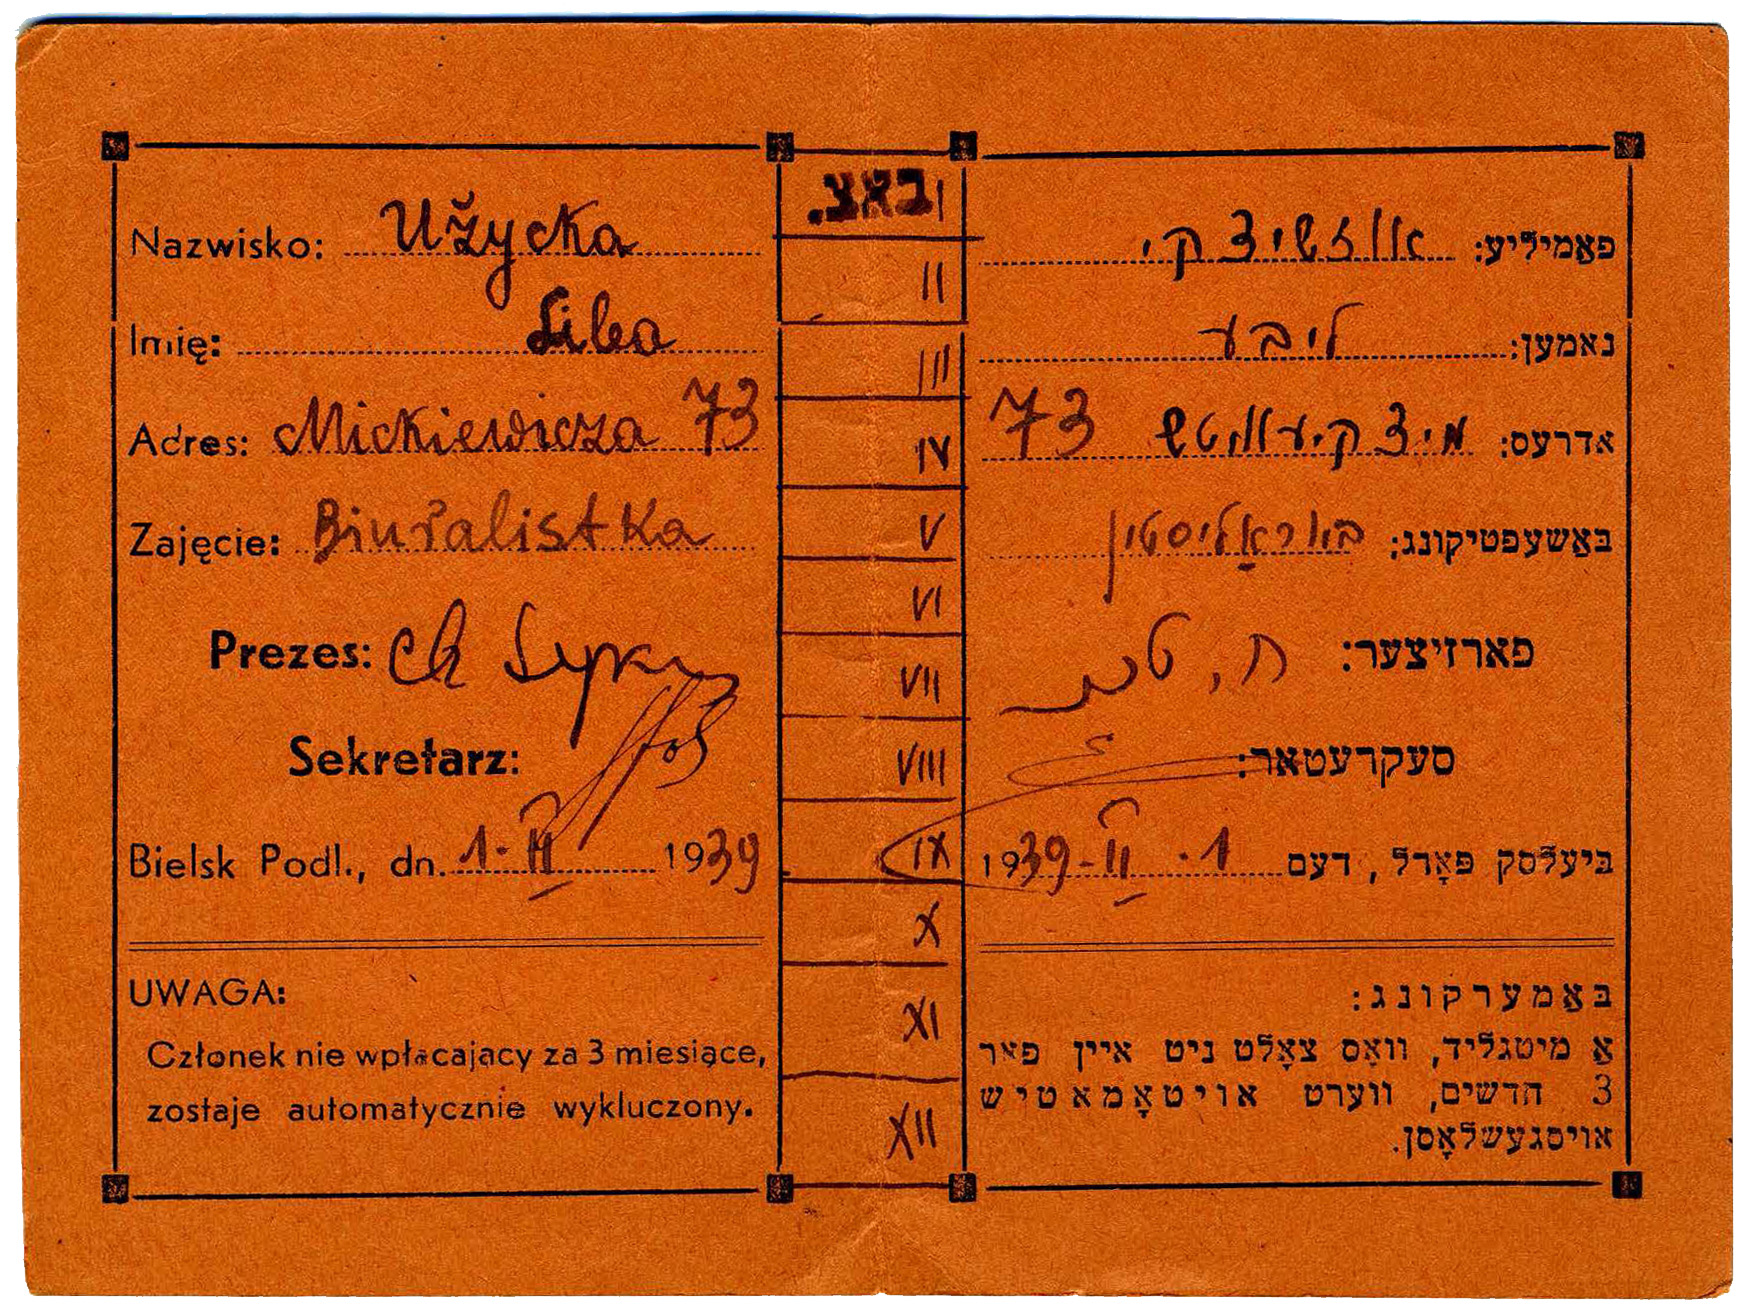 Nazwisko: Użycka
Imię: Liba
Adres: Mickiewicza 73
Zajęcie: Biuralistka
Prezes: Ch
Sekretarz:
Bielsk Podl., dn. 1-II 1939
UWAGA:
Członek nie wpłacajacy za 3 miesiące,
zostaje automatycznie wykluczony.
באצ. I
II
III
IV
V
VI
VII
VIII
IX
X
XI
XII
פאַמיליע: אוזשיצקי
נאמען: ליבע
אדרעס: מיצקיעוויטש 73
באַשעפטיקונג: ביוראַליסטין
פארזיצער: ח.
סעקרעטאר:
ביעלסק פּאָדל, דעם 1. II-1939
באַמערקונג:
אַ מיטגליד, וואָס צאָלט ניט איין פאר
3 חדשים, ווערט אויטאָמאטיש
אויסגעשלאָסן.